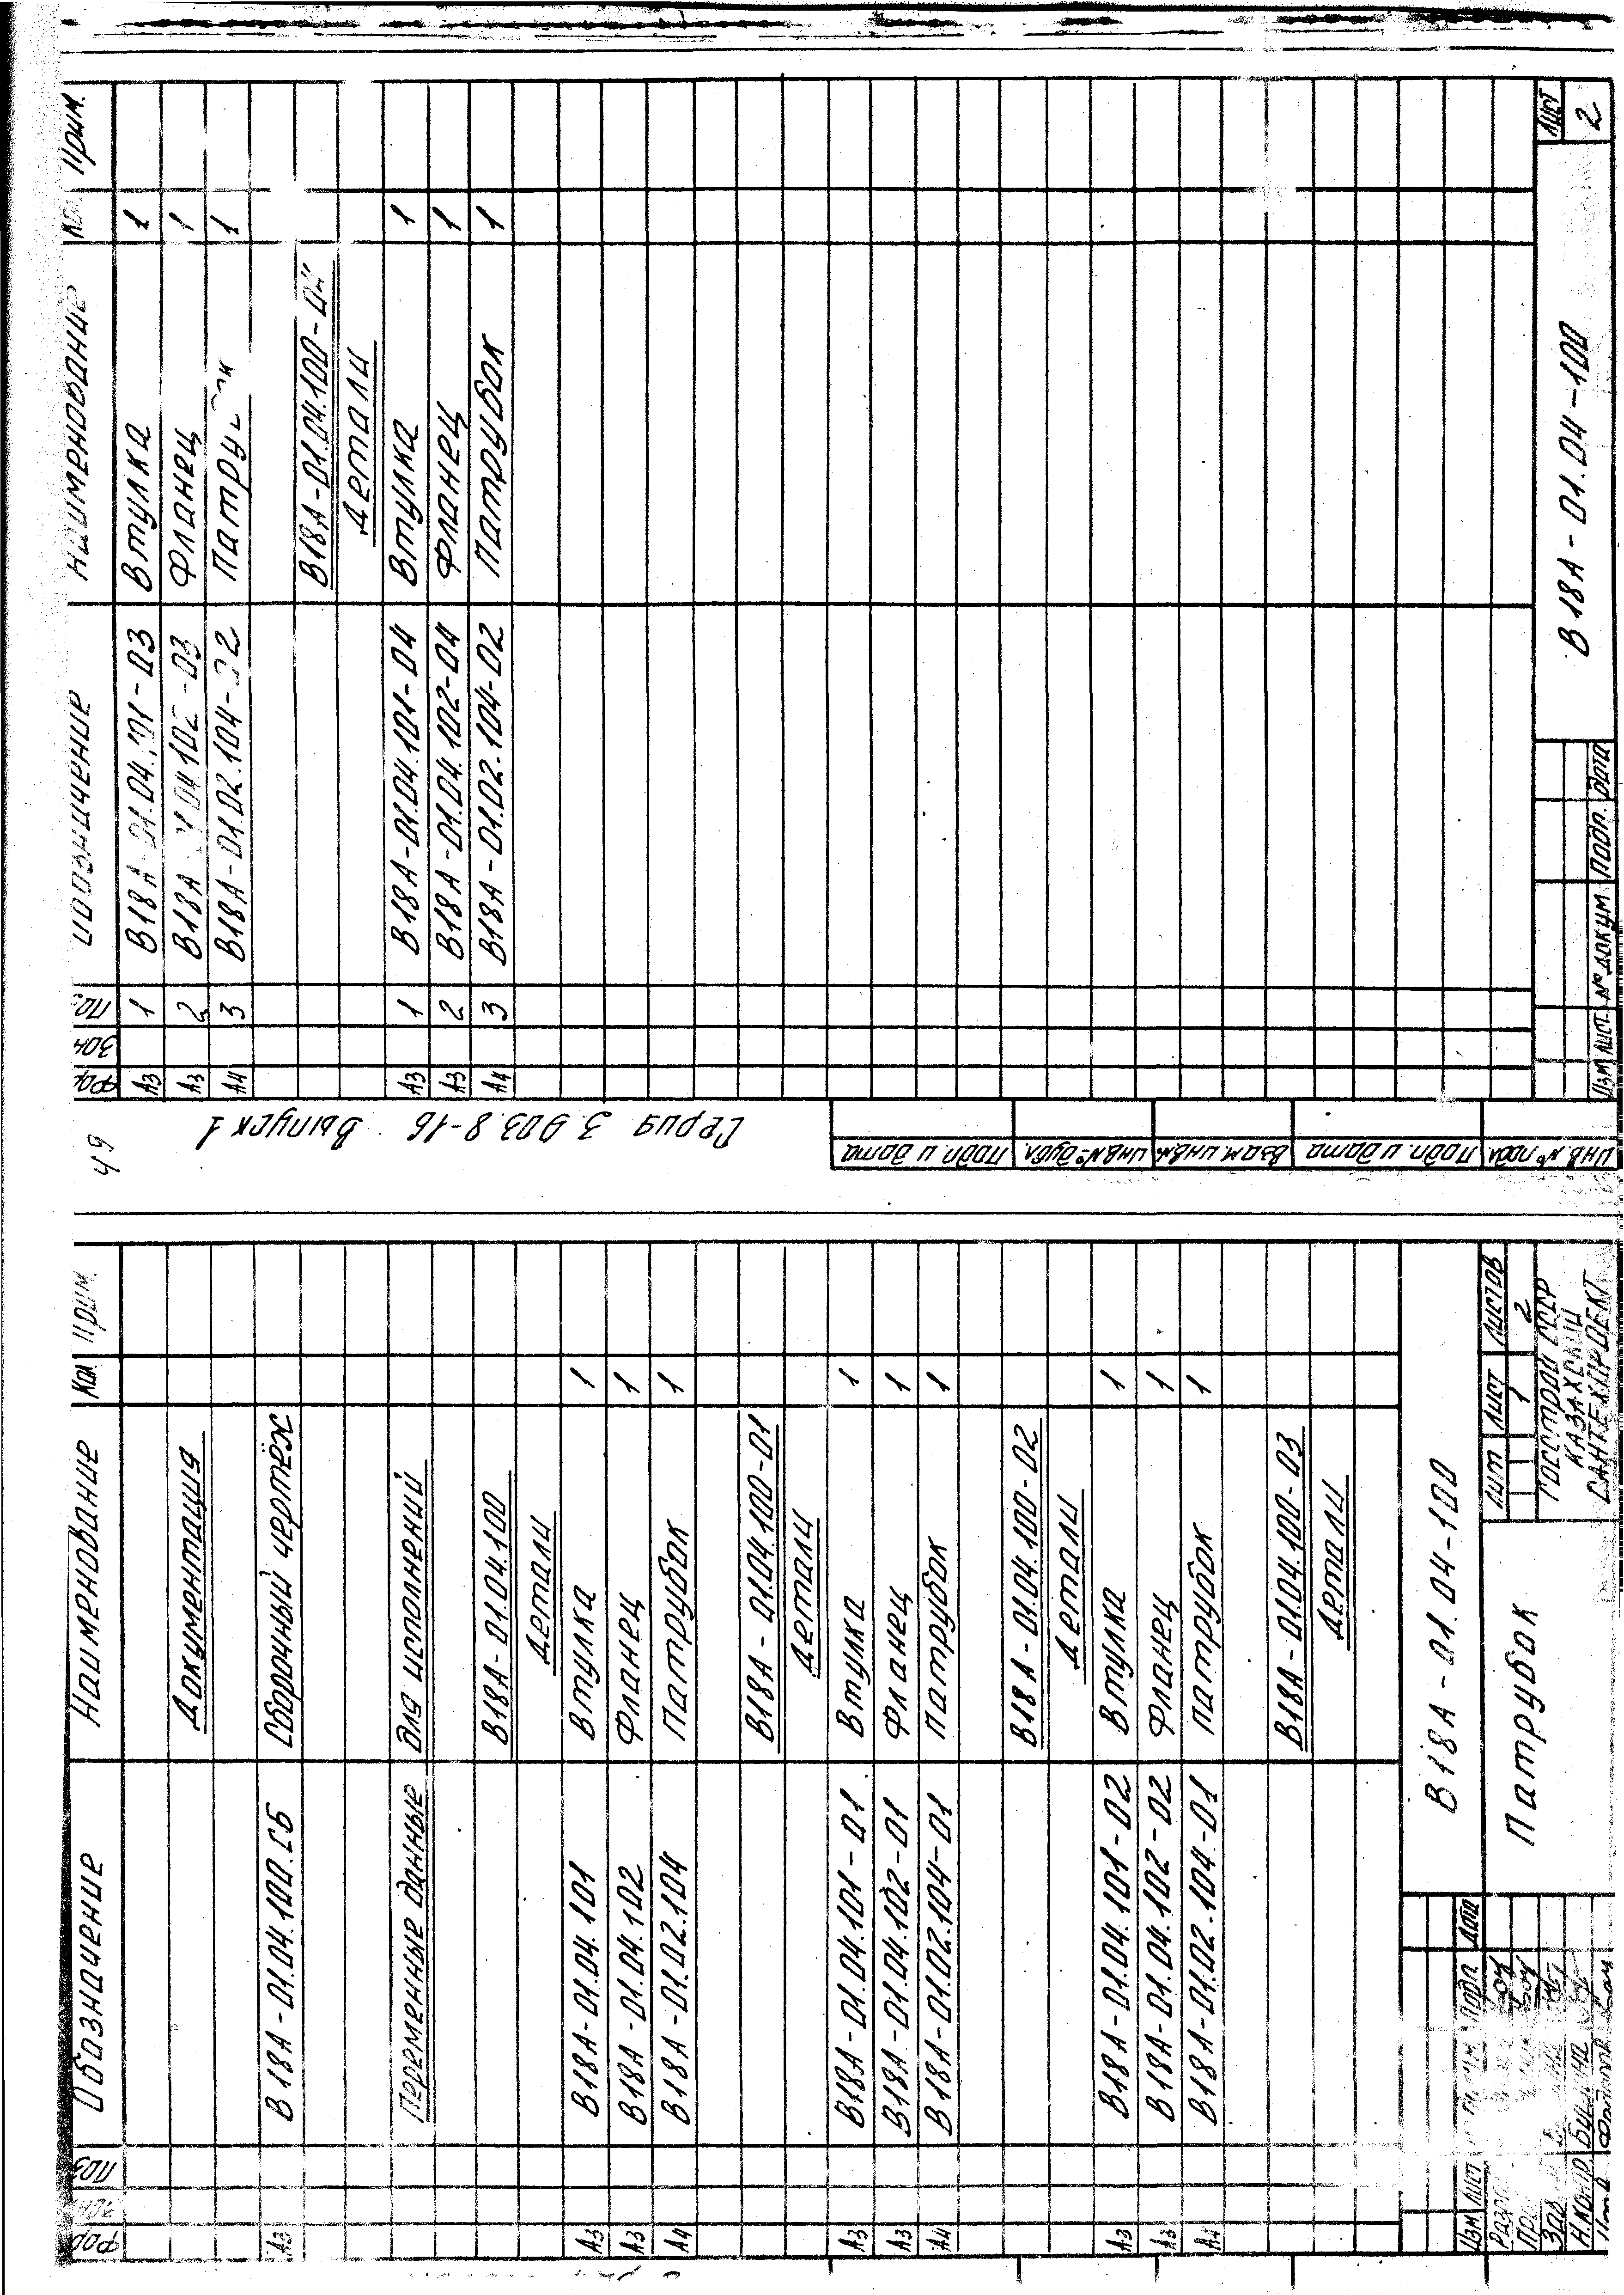 Фор Зон Поз Обозначение Наименование Кол. Прим.
Документация
А3 В18А-01.04.100.СБ Сборочный чертёж
Переменные данные для исполнений
В18А-01.04.100
Детали
А3 В18А-01.04.101 Втулка 1
А3 В18А-01.04.102 Фланец 1
А4 В18А-01.02.104 Патрубок 1
В18А-01.04.100-01
Детали
А3 В18А-01.04.101-01 Втулка 1
А3 В18А-01.04.102-01 Фланец 1
А4 В18А-01.02.104-01 Патрубок 1
В18А-01.04.100-02
Детали
А3 В18А-01.04.101-02 Втулка 1
А3 В18А-01.04.102-02 Фланец 1
А4 В18А-01.02.104-01 Патрубок 1
В18А-01.04.100-03
Детали
В18А-01.04-100
Изм Лист Подп Дата
Н.контр
Патрубок
Лит Лист Листов
1 2
Госстрой СССР
КАЗАХСКИЙ
САНТЕХПРОЕКТ
49
Серия 3.903.8-16 Выпуск 1
Подп. и дата
Инв № дубл.
Взам. инв. №
Подп. и дата
Инв № подл
Фор Зон Поз. Обозначение Наименование Кол. Прим.
А3 1 В18А-01.04.101-03 Втулка 1
А3 2 В18А 04 102-03 Фланец 1
А4 3 В18А-01.02.104- 2 1
В18А-01.04.100-04
Детали
А3 1 В18А-01.04.101-04 Втулка 1
А3 2 В18А-01.04.102-04 Фланец 1
А4 3 В18А-01.02.104-02 Патрубок 1
Изм Лист № докум Подп. Дата
В18А-01.04-100
Лист
2